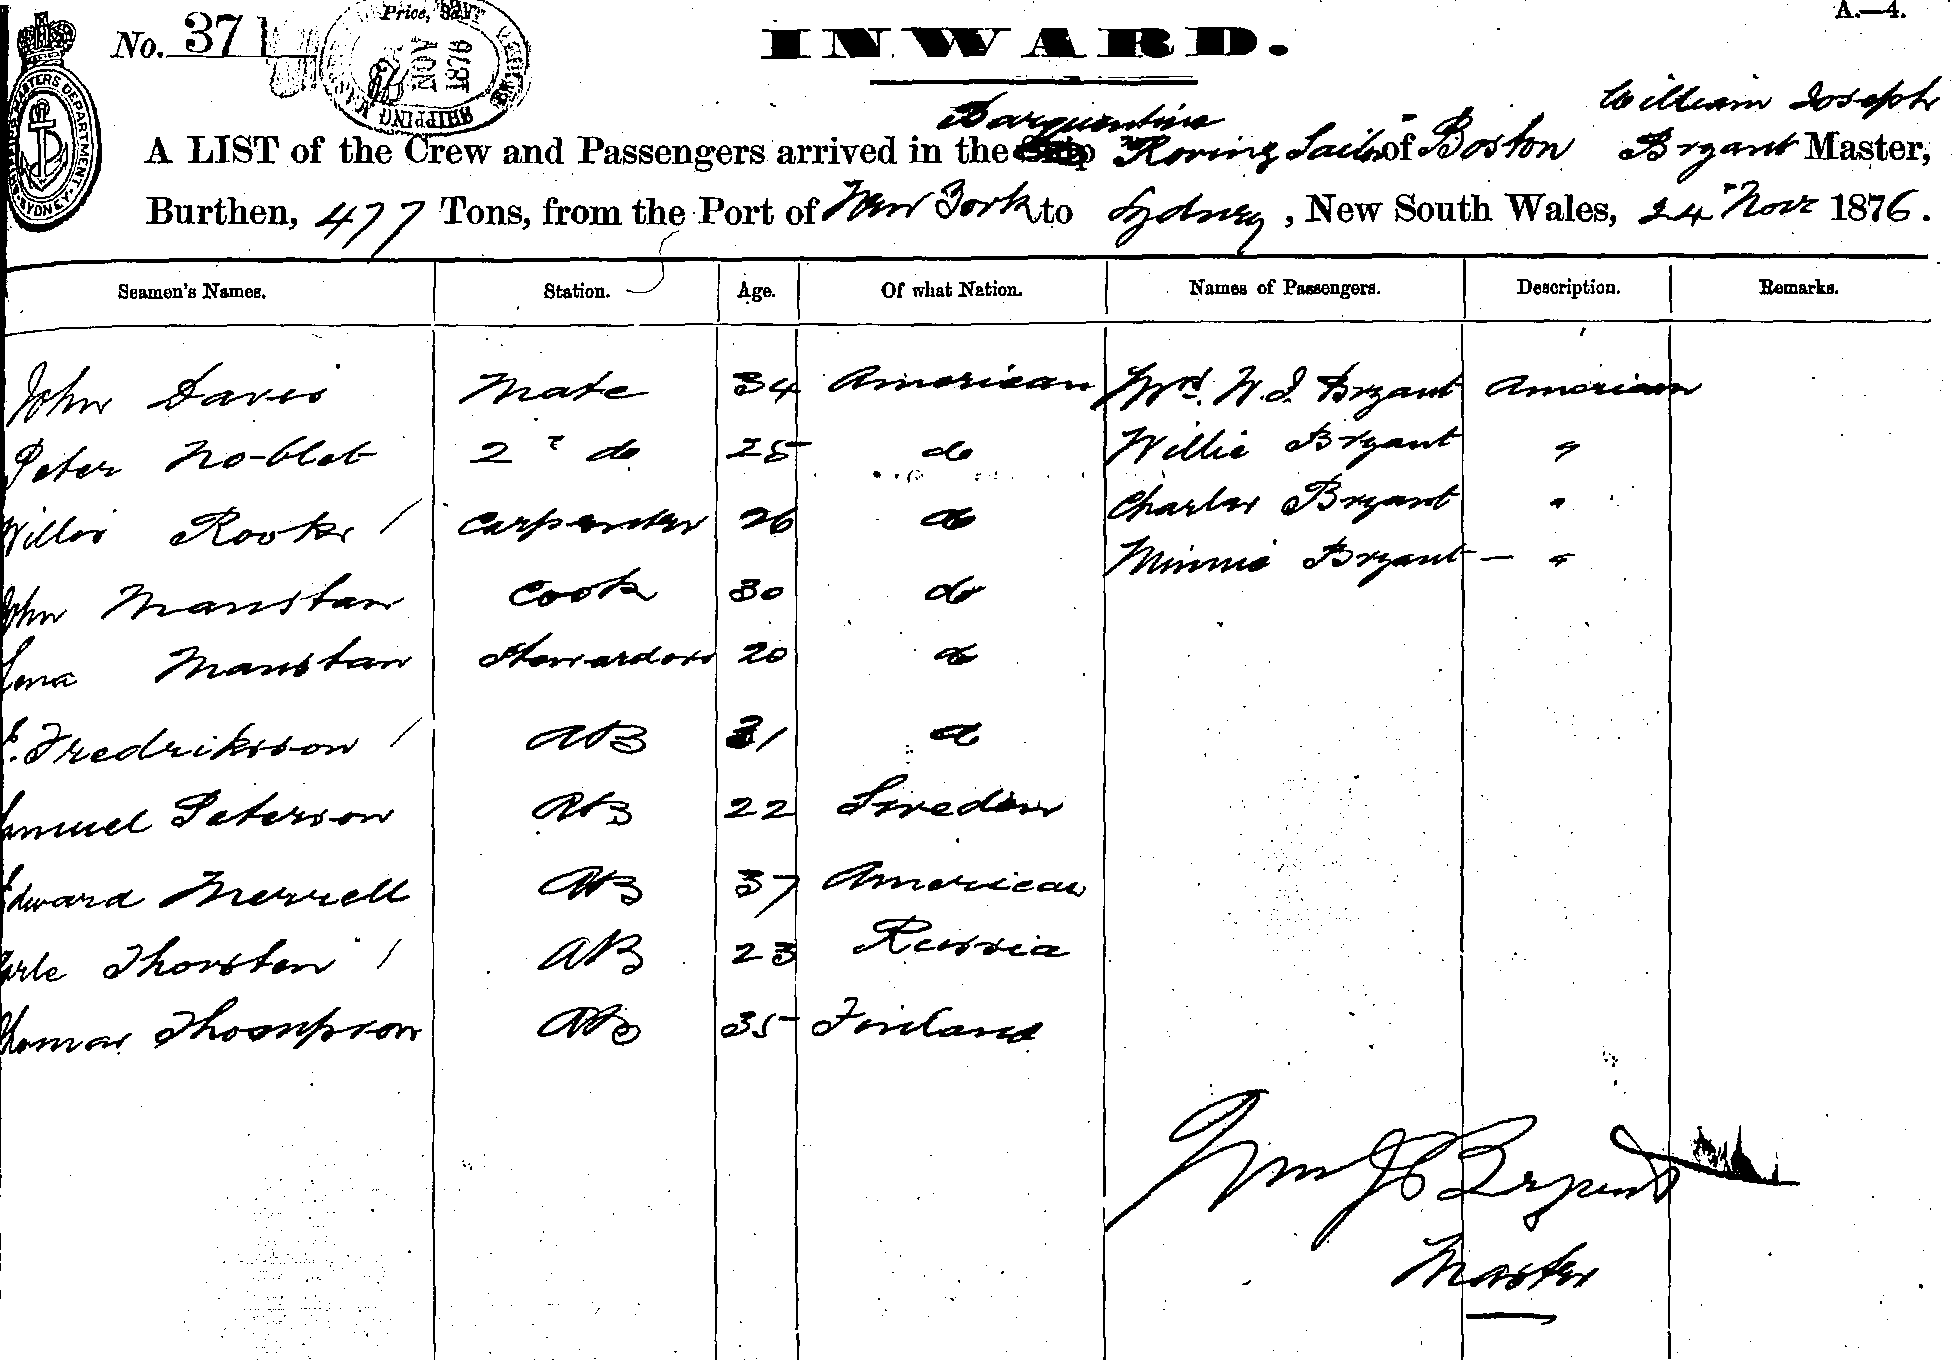 A.—4.
No. 371
Price,
SHIPPING
NOV
1876
INWARD.
SYDNEY
Barquentine William Joseph
A LIST of the Crew and Passengers arrived in the Ship Roving Sailor of Boston Bryant Master,
Burthen, 477 Tons, from the Port of New York to Sydney, New South Wales, 24" Novr 1876.
Seamen's Names. Station. Age. Of what Nation. Names of Passengers. Description. Remarks.
John Davis Mate 34 American Mrs. W. J. Bryant American
Peter Noblet 2 " do 25 do Willie Bryant "
Willis Rooks / Carpenter 26 do Charles Bryant "
John Manstan Cook 30 do Minnie Bryant — "
Lena Manstan Stewardess 20 do
E. Fredriksson / AB 31 do
Samuel Peterson AB 22 Sweden
Edward Merrell AB 37 American
Thorsten / AB 23 Russia
Thomas Thompson AB 35 Finland
Wm J Bryant
Master